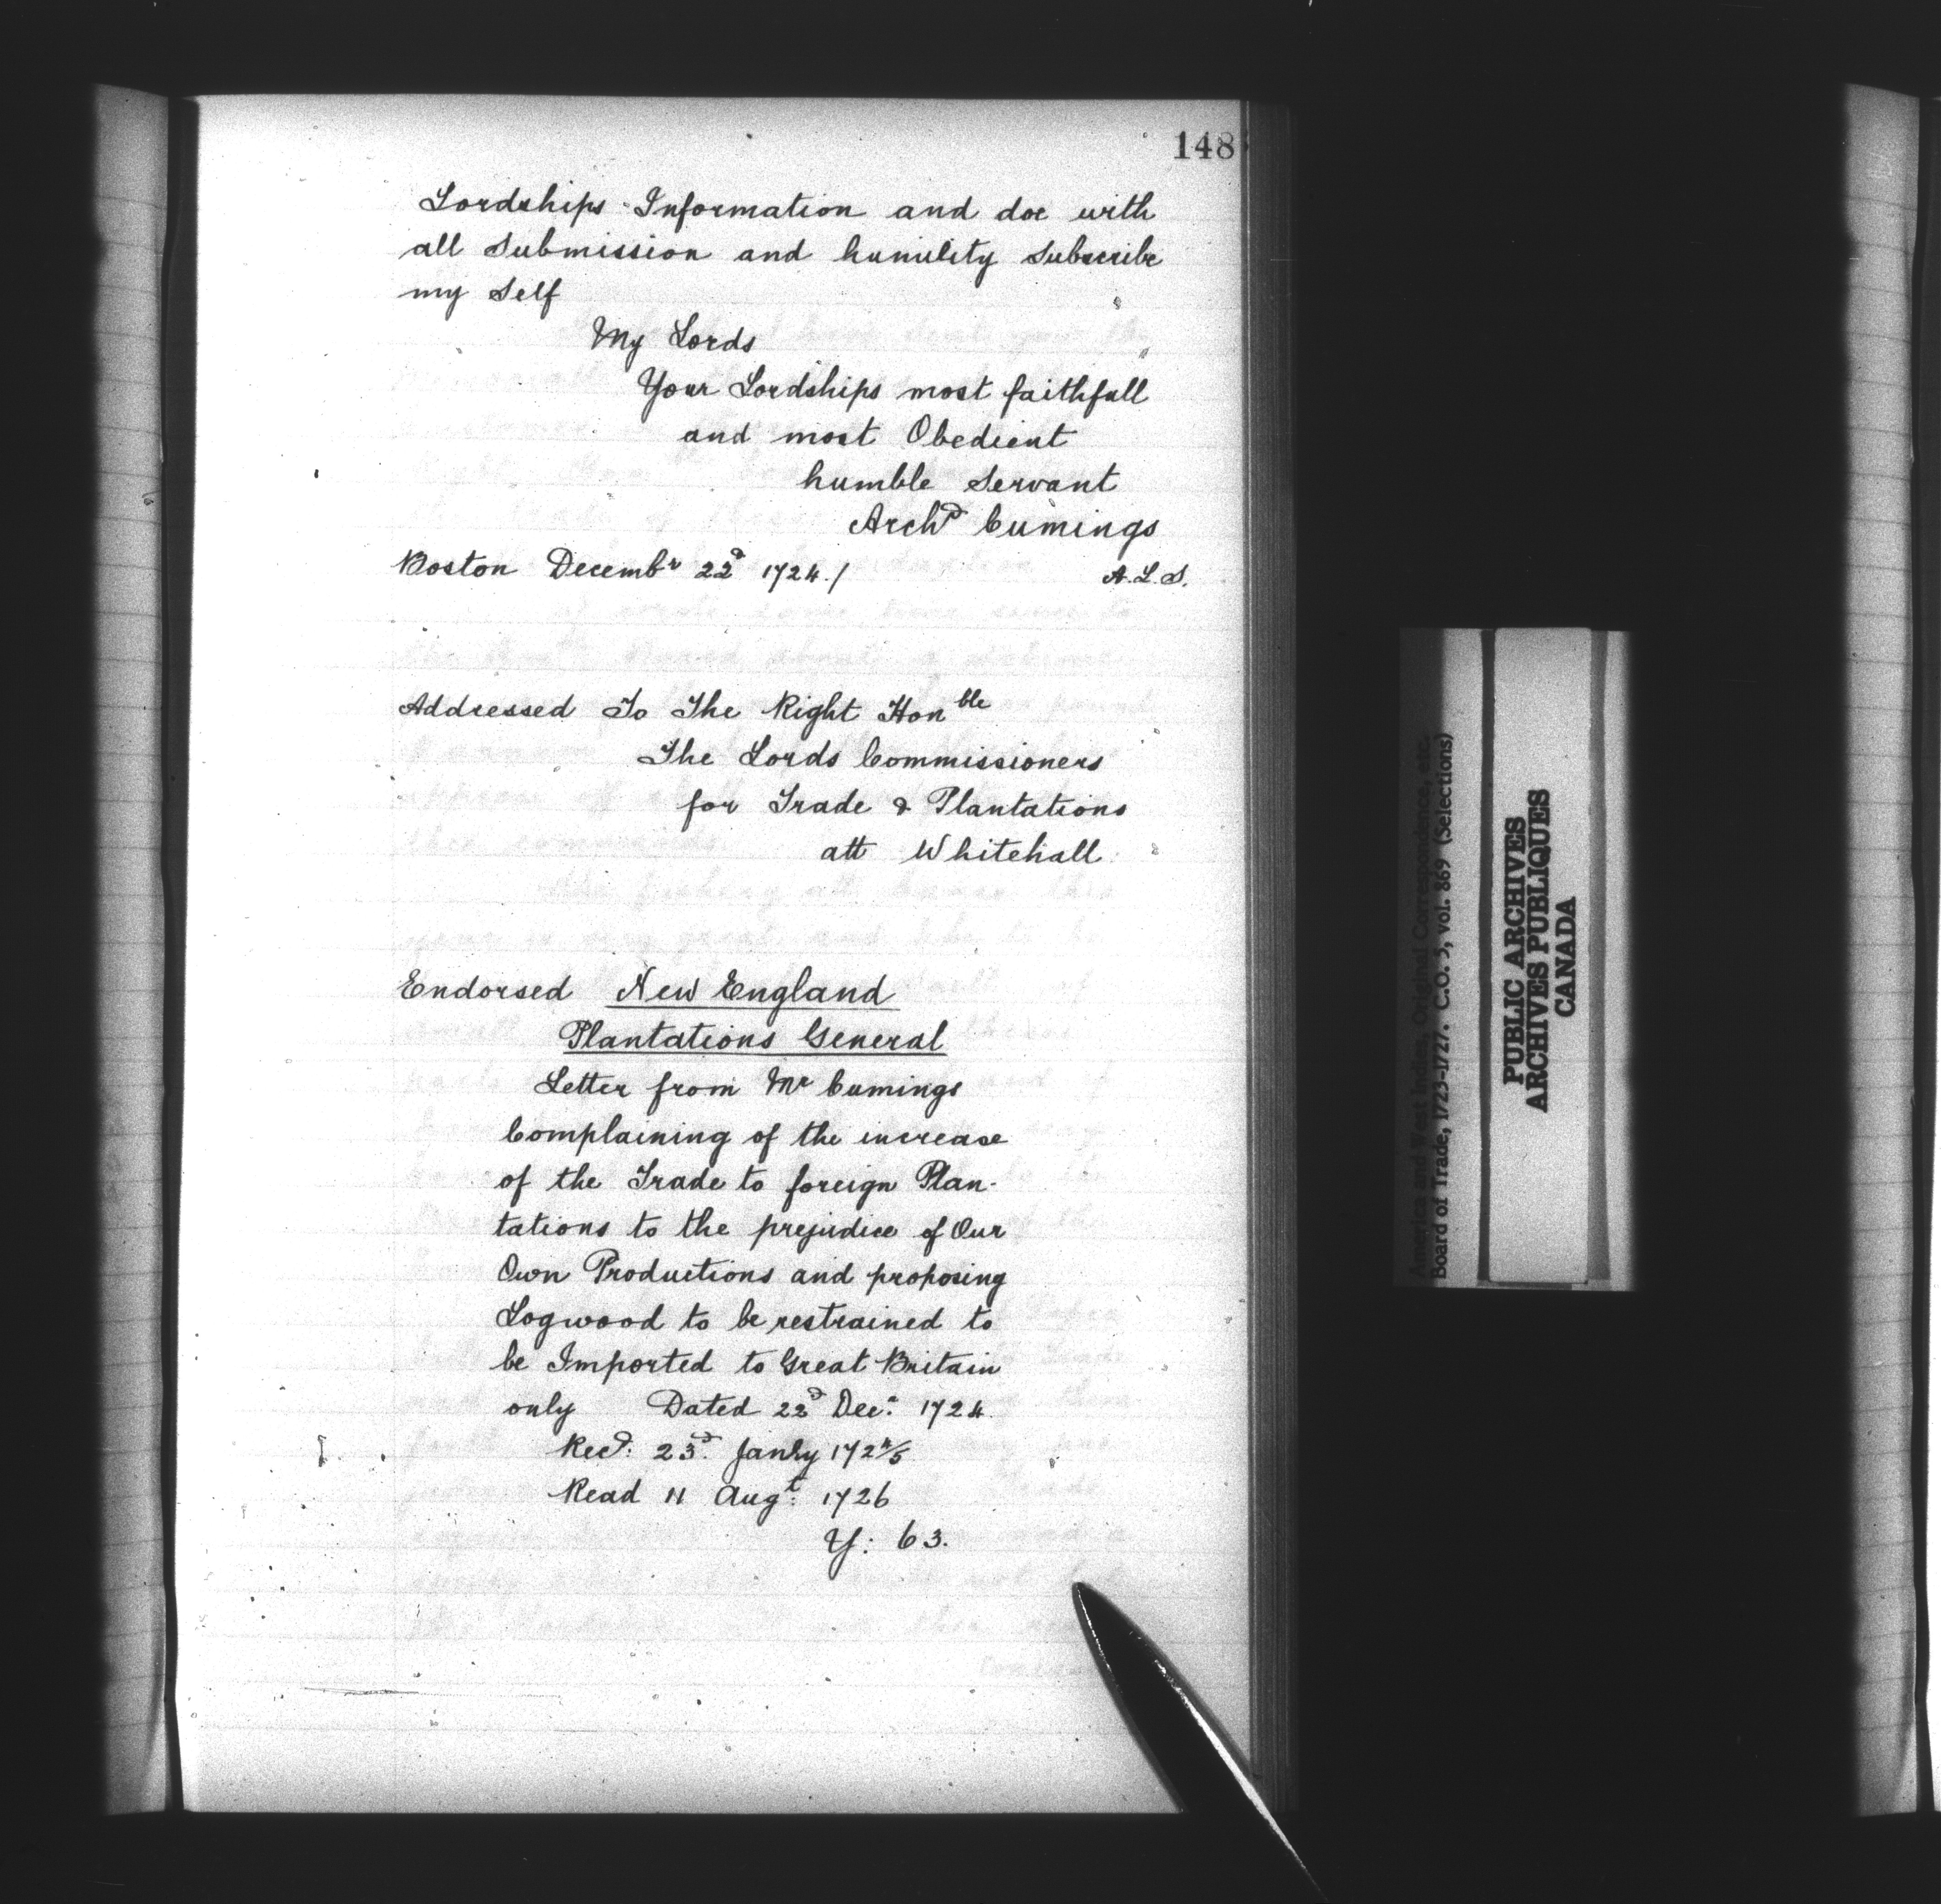 148
Lordships Information and doe with
all Submission and humility Subscribe
my Self
My Lords
Your Lordships most faithfull
and most Obedient
humble Servant
Archd Cumings
Boston Decembr 22d 1724./ A.L.S.
Addressed To The Right Honble
The Lords Commissioners
for Trade & Plantations
att Whitehall
Endorsed New England
Plantations General
Letter from Mr Cumings
Complaining of the increase
of the Trade to foreign Plan-
tations to the prejudice of Our
Own Productions and proposing
Logwood to be restrained to
be Imported to Great Britain
only Dated 22d Decr: 1724
Recd: 23d: Janry 1724/5
Read 11 Augt: 1726
Y: 63.
America and West Indies, Original Correspondence, etc.,
Board of Trade, 1723-1727. C.O. 5, vol. 869 (Selections)
PUBLIC ARCHIVES
ARCHIVES PUBLIQUES
CANADA